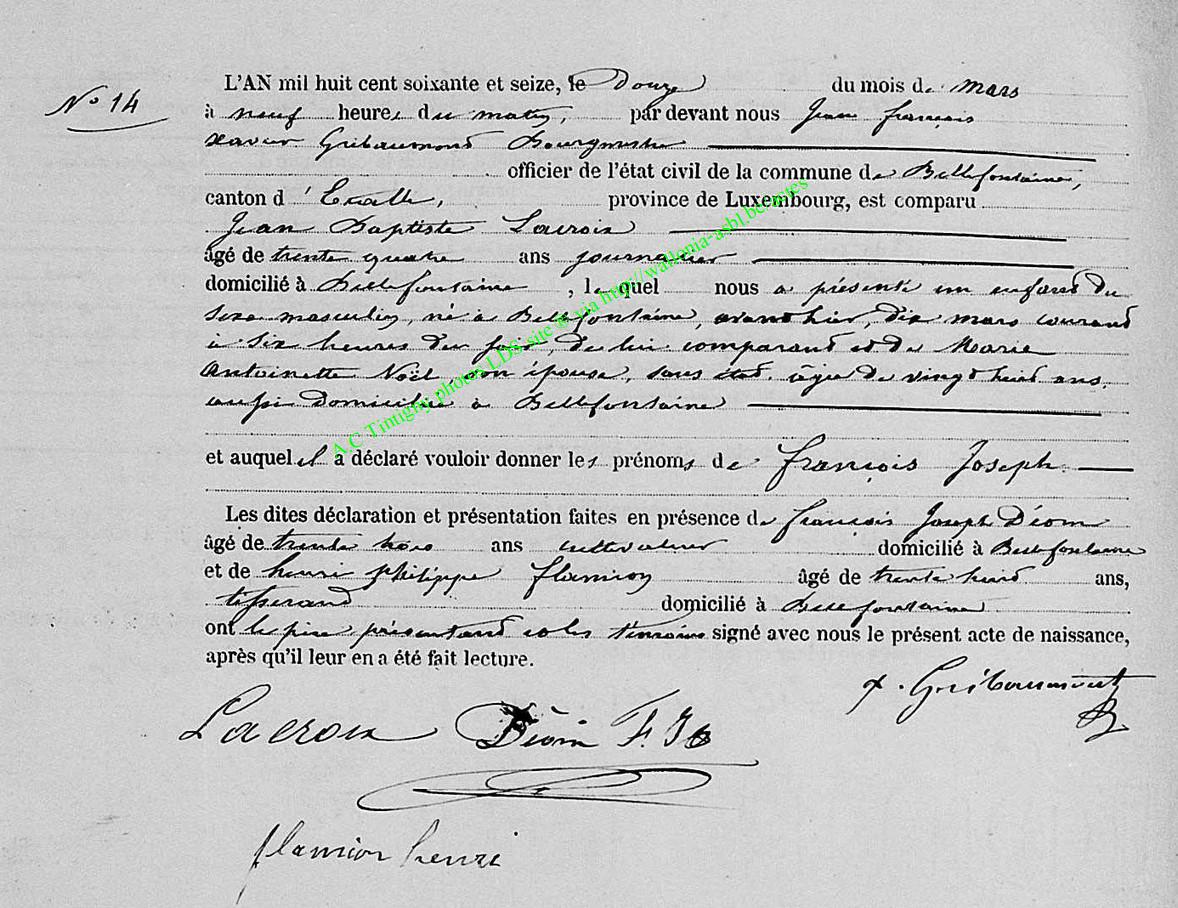 N° 14
L'AN mil huit cent soixante et seize, le Douze du mois de mars
à neuf heures du matin, par devant nous Jean françois
xavier Gribaumont Bourgmestre
officier de l'état civil de la commune de Bellefontaine,
canton d'Etalle, province de Luxembourg, est comparu
Jean Baptiste Lacroix
âgé de trente quatre ans journalier
domicilié à Bellefontaine, lequel nous a présenté un enfant du
sexe masculin, né à Bellefontaine, avant hier, dix mars courant
à six heures du soir, de lui comparant et de Marie
Antoinette Noël, son épouse, sans état, âgée de vingt huit ans,
aussi domiciliée à Bellefontaine
et auquel il a déclaré vouloir donner les prénoms de françois Joseph
Les dites déclaration et présentation faites en présence de françois Joseph Déom
âgé de trente trois ans cultivateur domicilié à Bellefontaine
et de henri philippe flamion âgé de trente huit ans,
tisserand domicilié à Bellefontaine
ont le père présentant et les témoins signé avec nous le présent acte de naissance,
après qu'il leur en a été fait lecture.
x. Gribaumont
Lacroix Déom F. J.
flamion henri
A.C Tintigny, photos LDS site @ via http//wallonia-asbl.be/actes